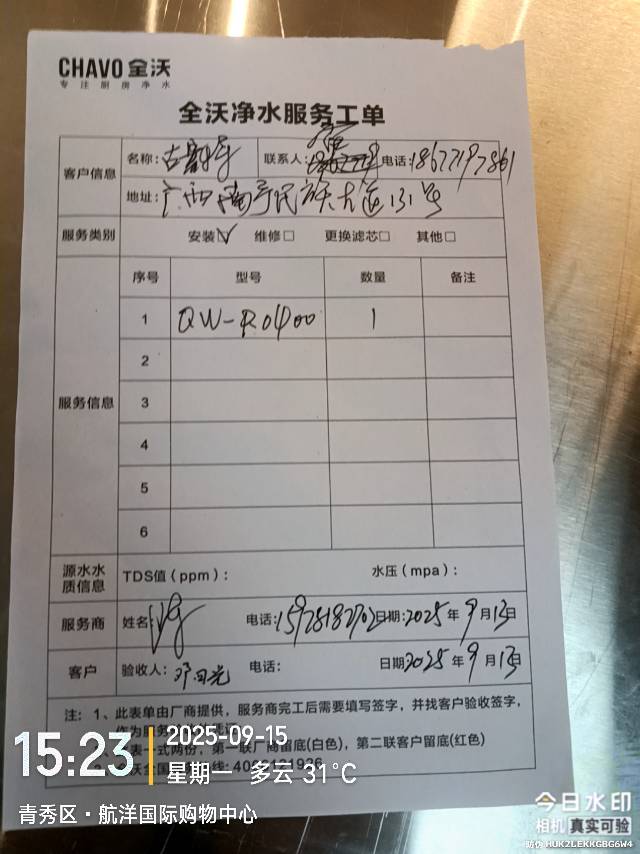 CHAVO 全沃
专注厨房净水
全沃净水服务工单
客户信息 名称: 联系人: 电话: 18677197861
地址: 广西南宁民族大道131号
服务类别 安装☑ 维修□ 更换滤芯□ 其他□
服务信息 序号 型号 数量 备注
1 QW-RO400 1
2
3
4
5
6
源水水质信息 TDS值（ppm）: 水压（mpa）:
服务商 姓名: 电话: 日期: 2025年9月13日
客户 验收人: 邓田光 电话: 日期 2025年9月13日
注: 1、此表单由厂商提供，服务商完工后需要填写签字，并找客户验收签字，
作为服务
表一式两份，第一联厂商留底(白色)，第二联客户留底(红色)
15:23 2025-09-15
星期一 多云 31℃
青秀区·航洋国际购物中心
今日水印
相机 真实可验
防伪 HUK2LEKKGBG6W4